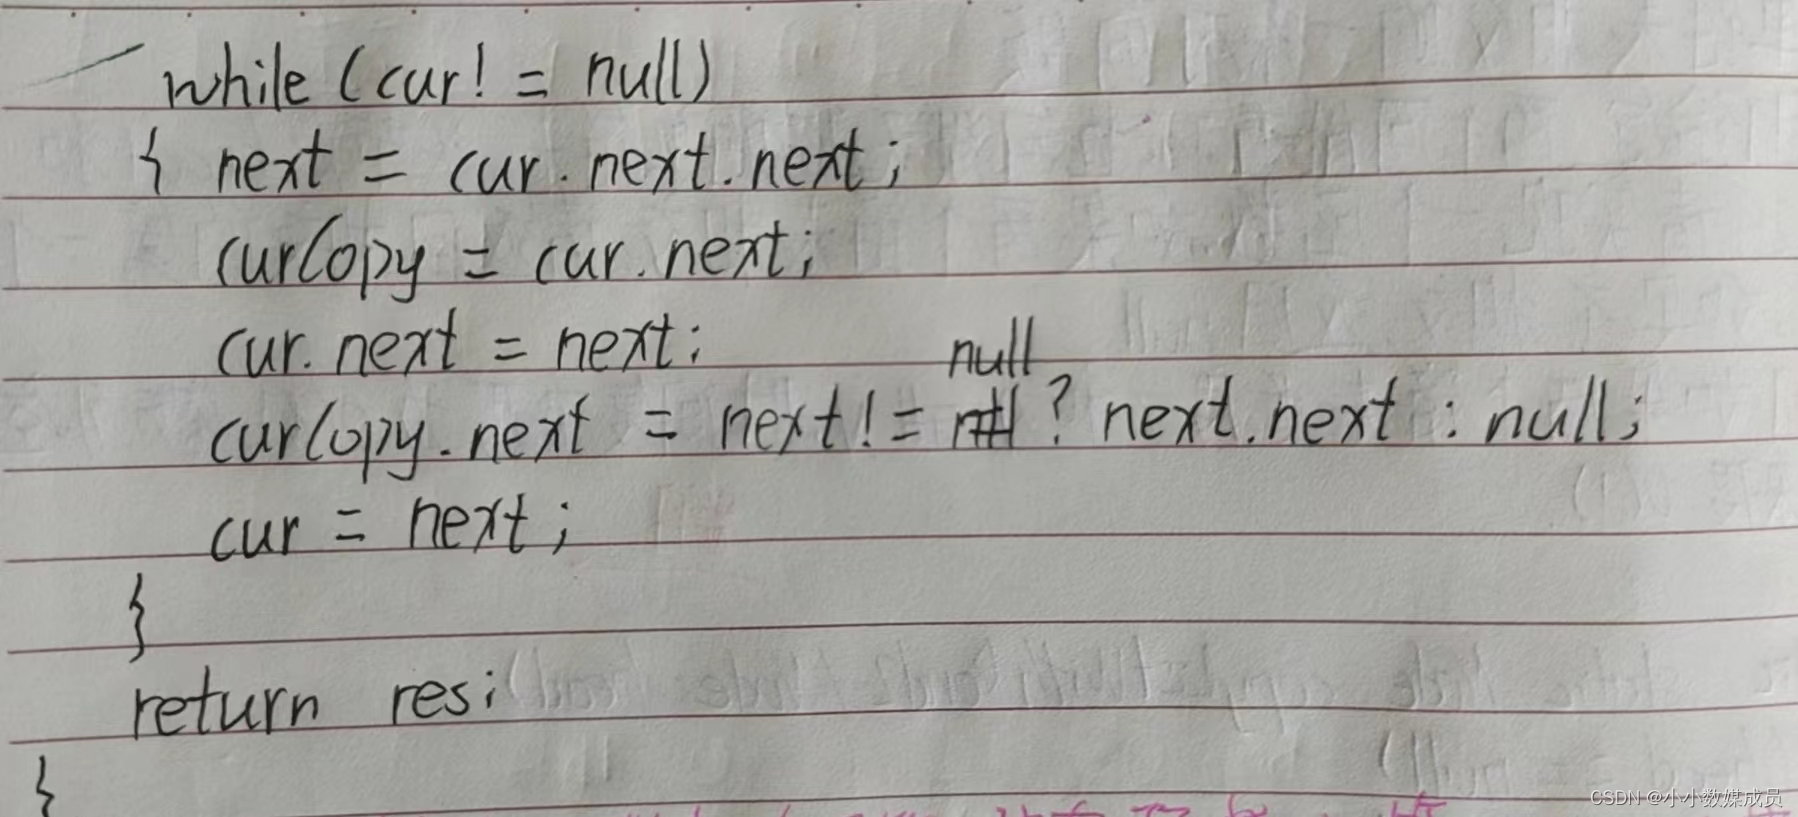 while (cur! = null)
{ next = cur.next.next;
curCopy = cur.next;
cur.next = next;
null
curCopy.next = next! = ? next.next : null;
cur = next;
}
return res;
}
CSDN @小小数媒成员